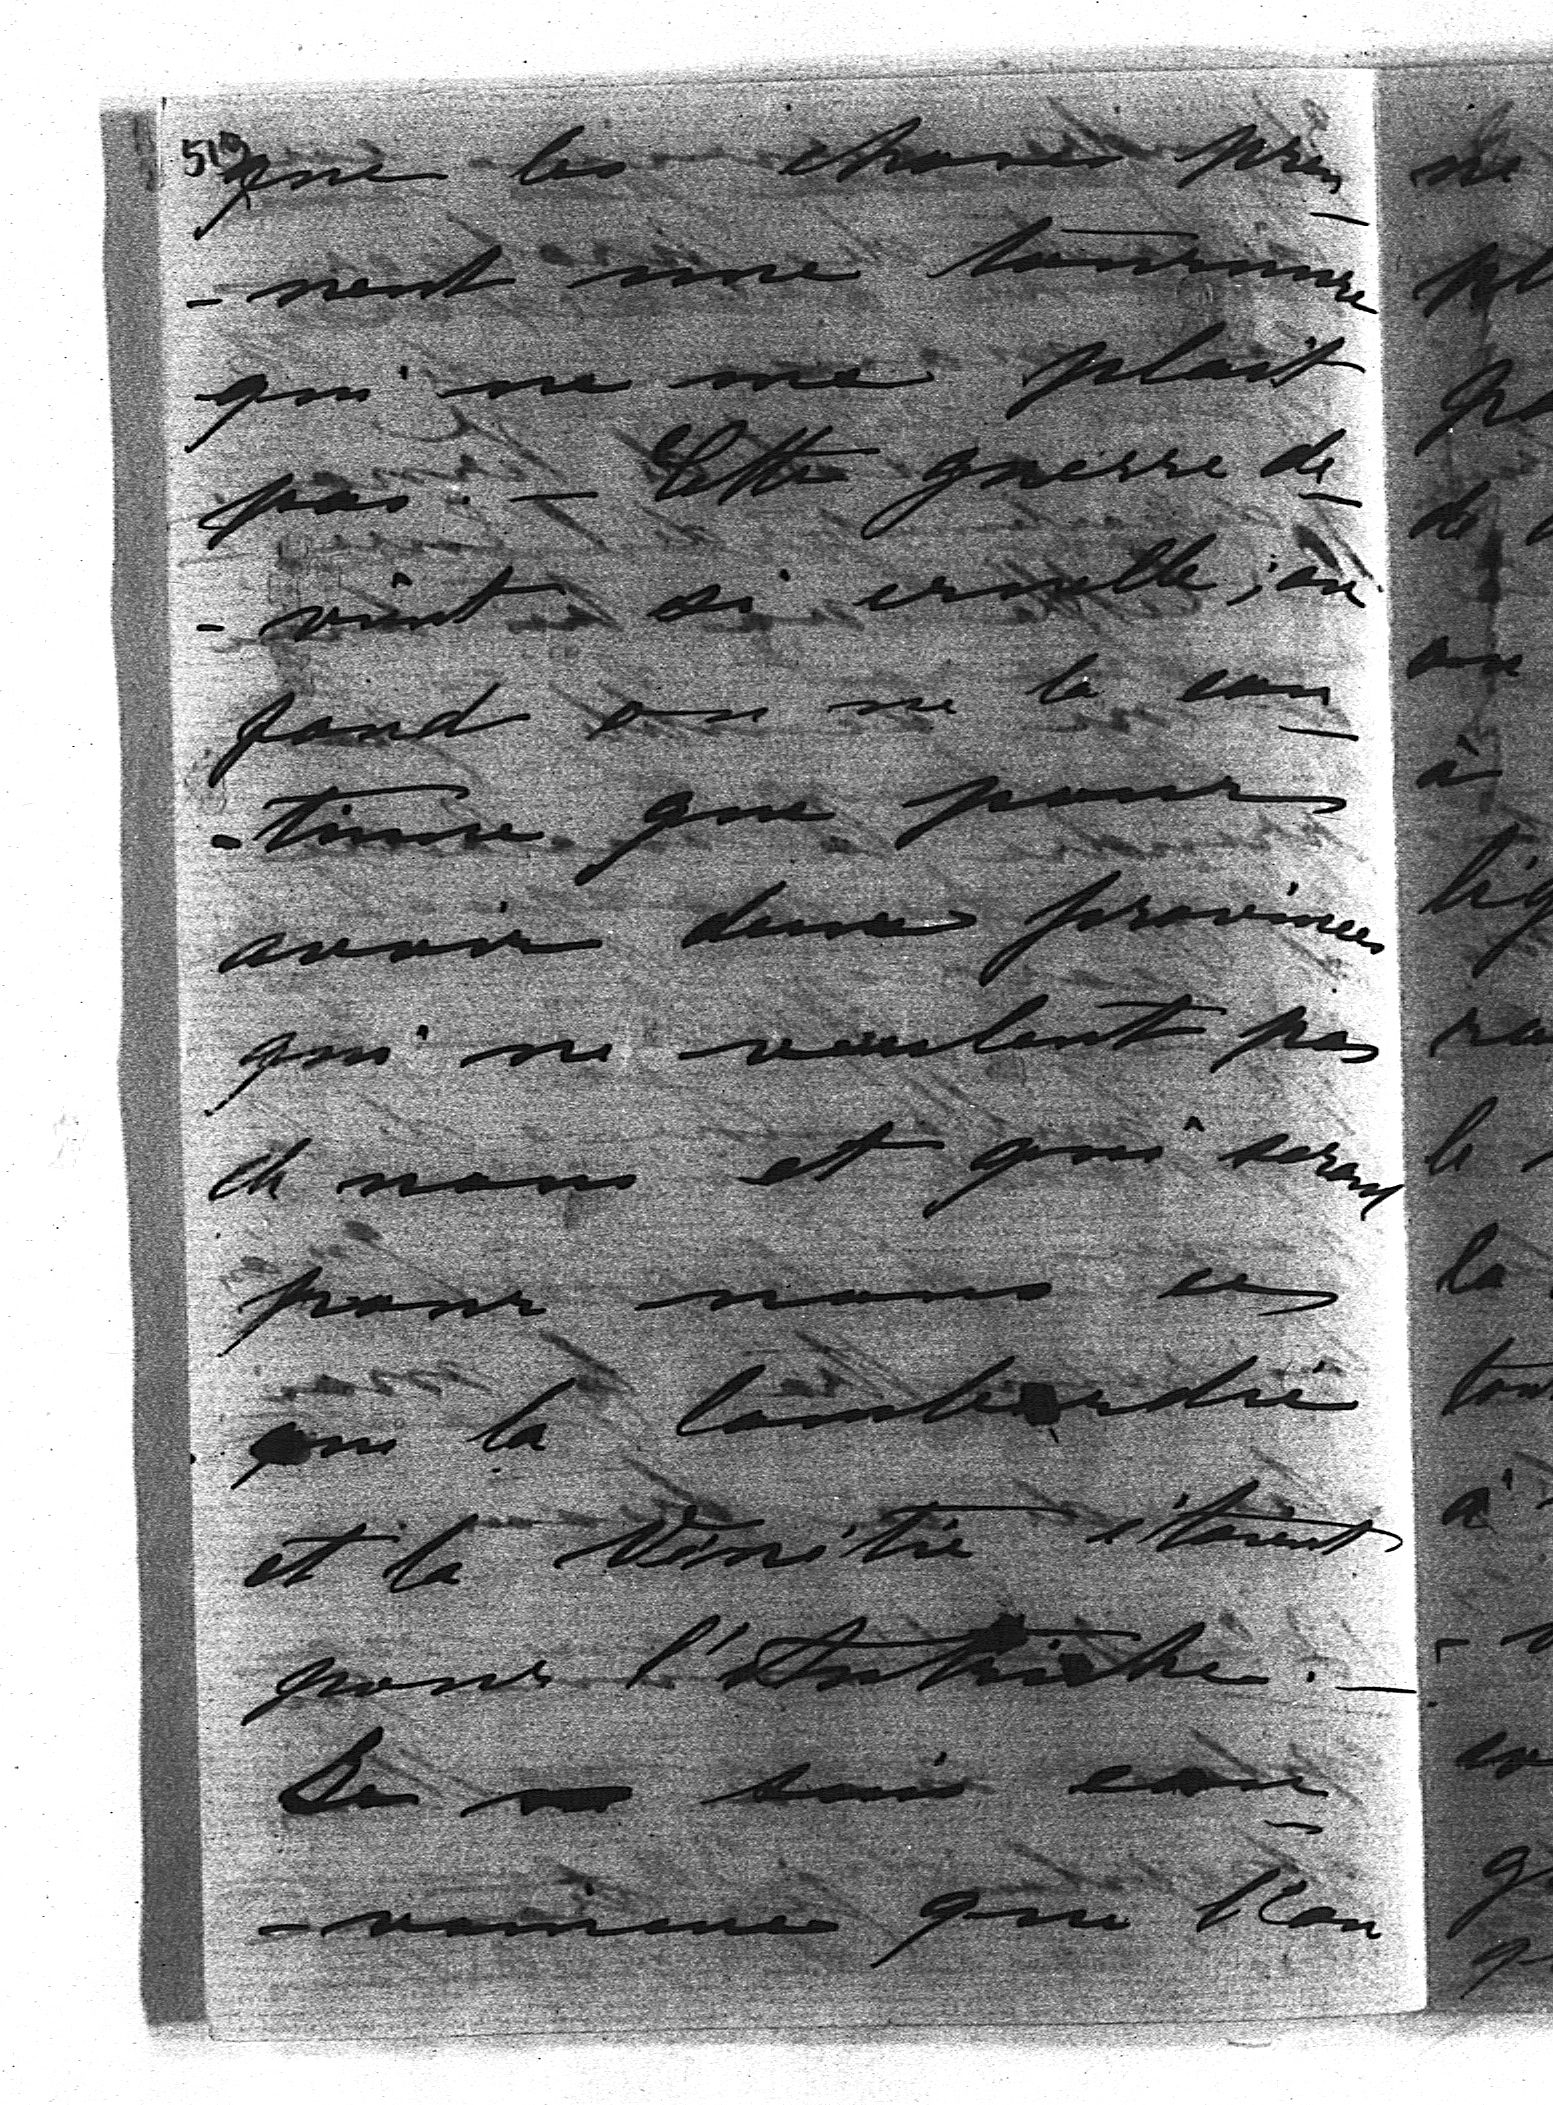 513
que les choses pren-
-nent une tournure
qui ne me plait
pas. - Cette guerre de-
-vient si cruelle; au
fond on ne la con-
-tinue que pour
avoir deux provinces
qui ne veulent pas
de nous et qui seront
pour nous ce
que la Lombardie
et la Vénétie étaient
pour l'Autriche. -
Je suis con-
-vaincue que l'on